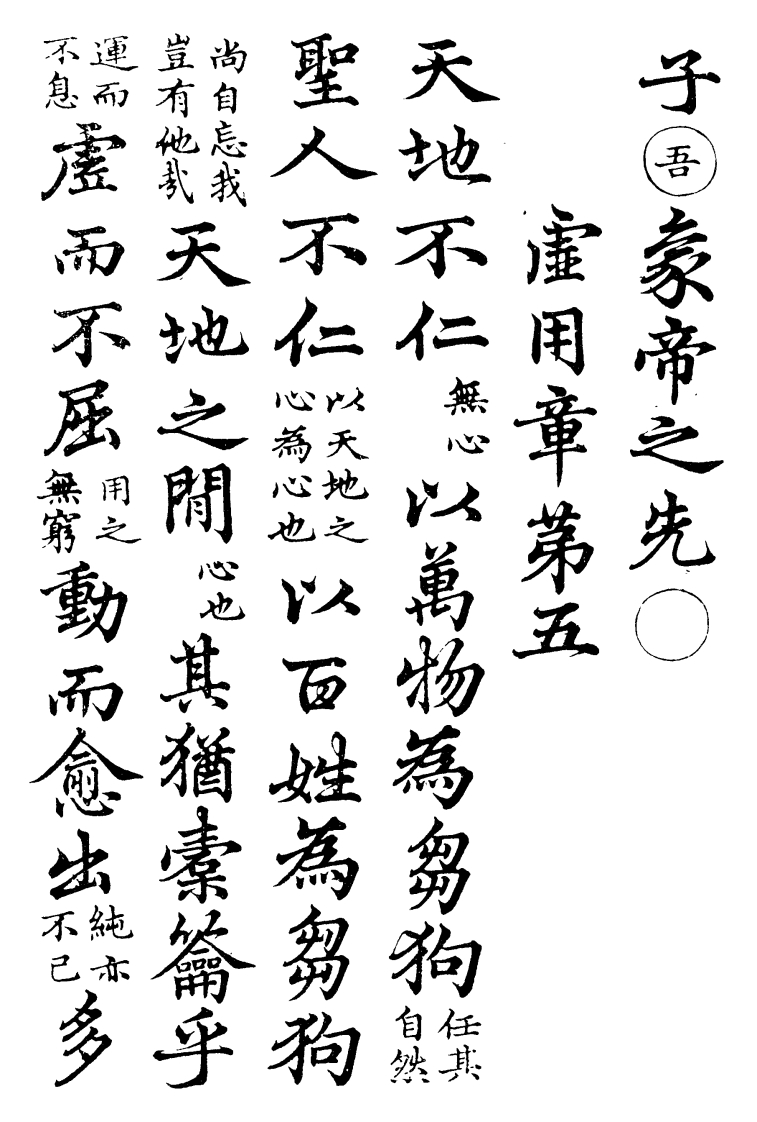 子吾象帝之先○
虛用章第五
天地不仁無心以萬物為芻狗任其自然
聖人不仁以天地之心為心也以百姓為芻狗
尚自忘我豈有他哉天地之閒心也其猶橐籥乎
運而不息虛而不屈用之無窮動而愈出純亦不已多